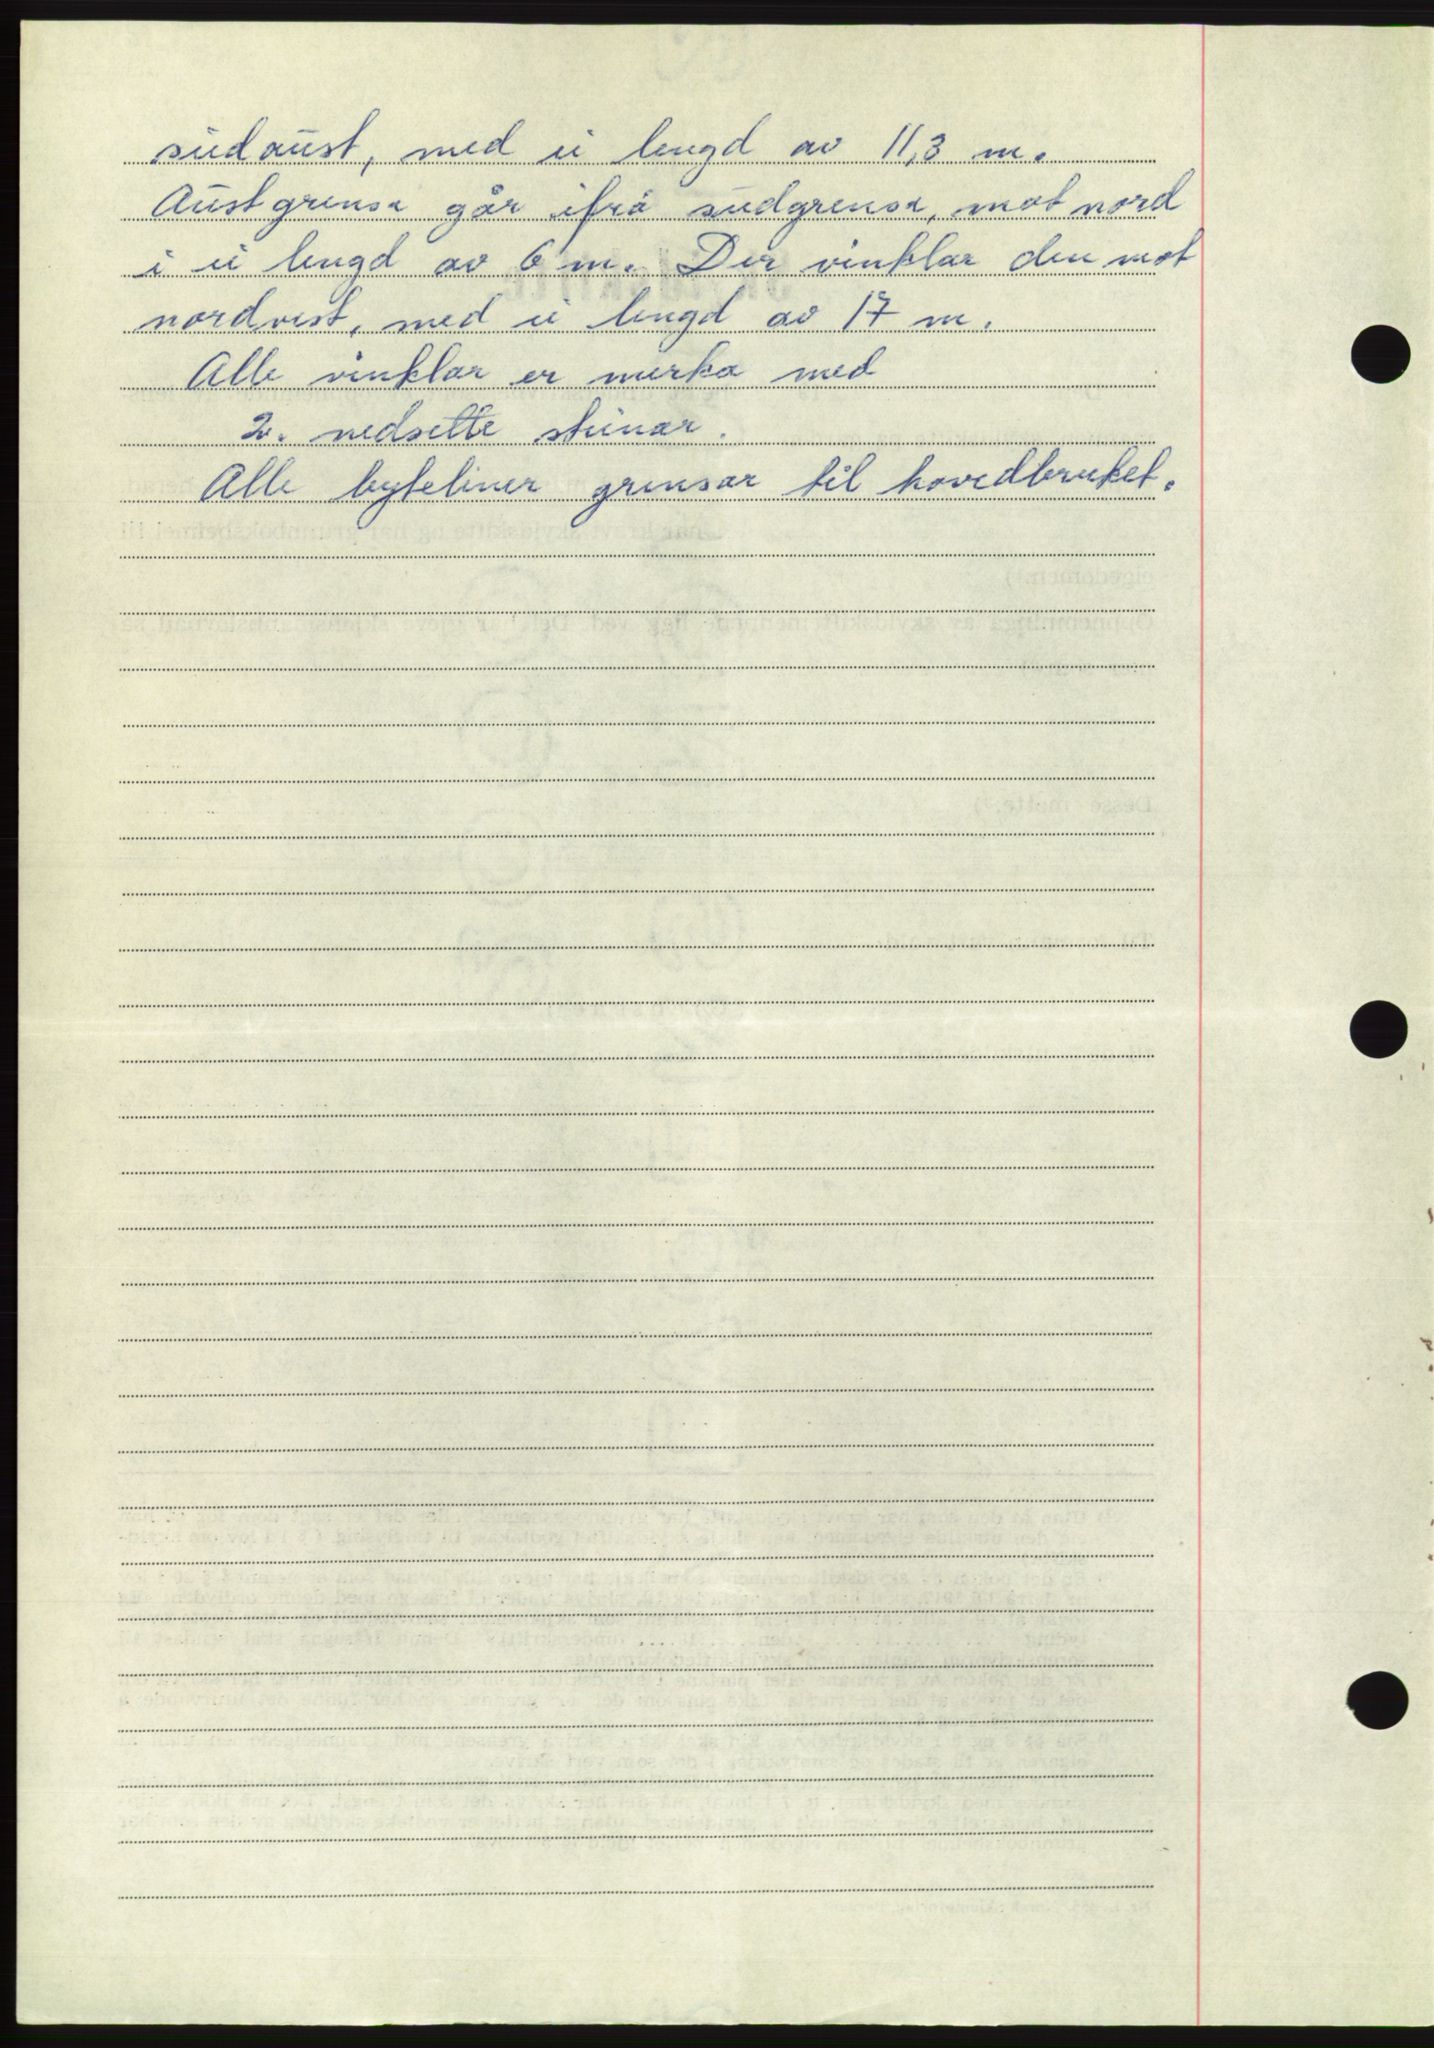 sudaust, med ei lengd av 11,3 m.
Austgrensa går ifrå sudgrensa, mot nord
i ei lengd av 6 m. Der vinklar den mot
nordvest, med ei lengd av 17 m.
Alle vinklar er merka med
2. nedsette steinar.
Alle byteliner grensar til hovedbruket.